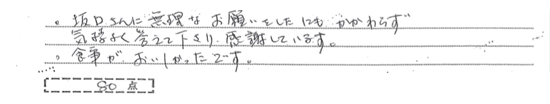 。坂口さんに無理なお願いをしたにもかかわらず
気持よく答えて下さり、感謝しています。
。食事がおいしかったです。
90点